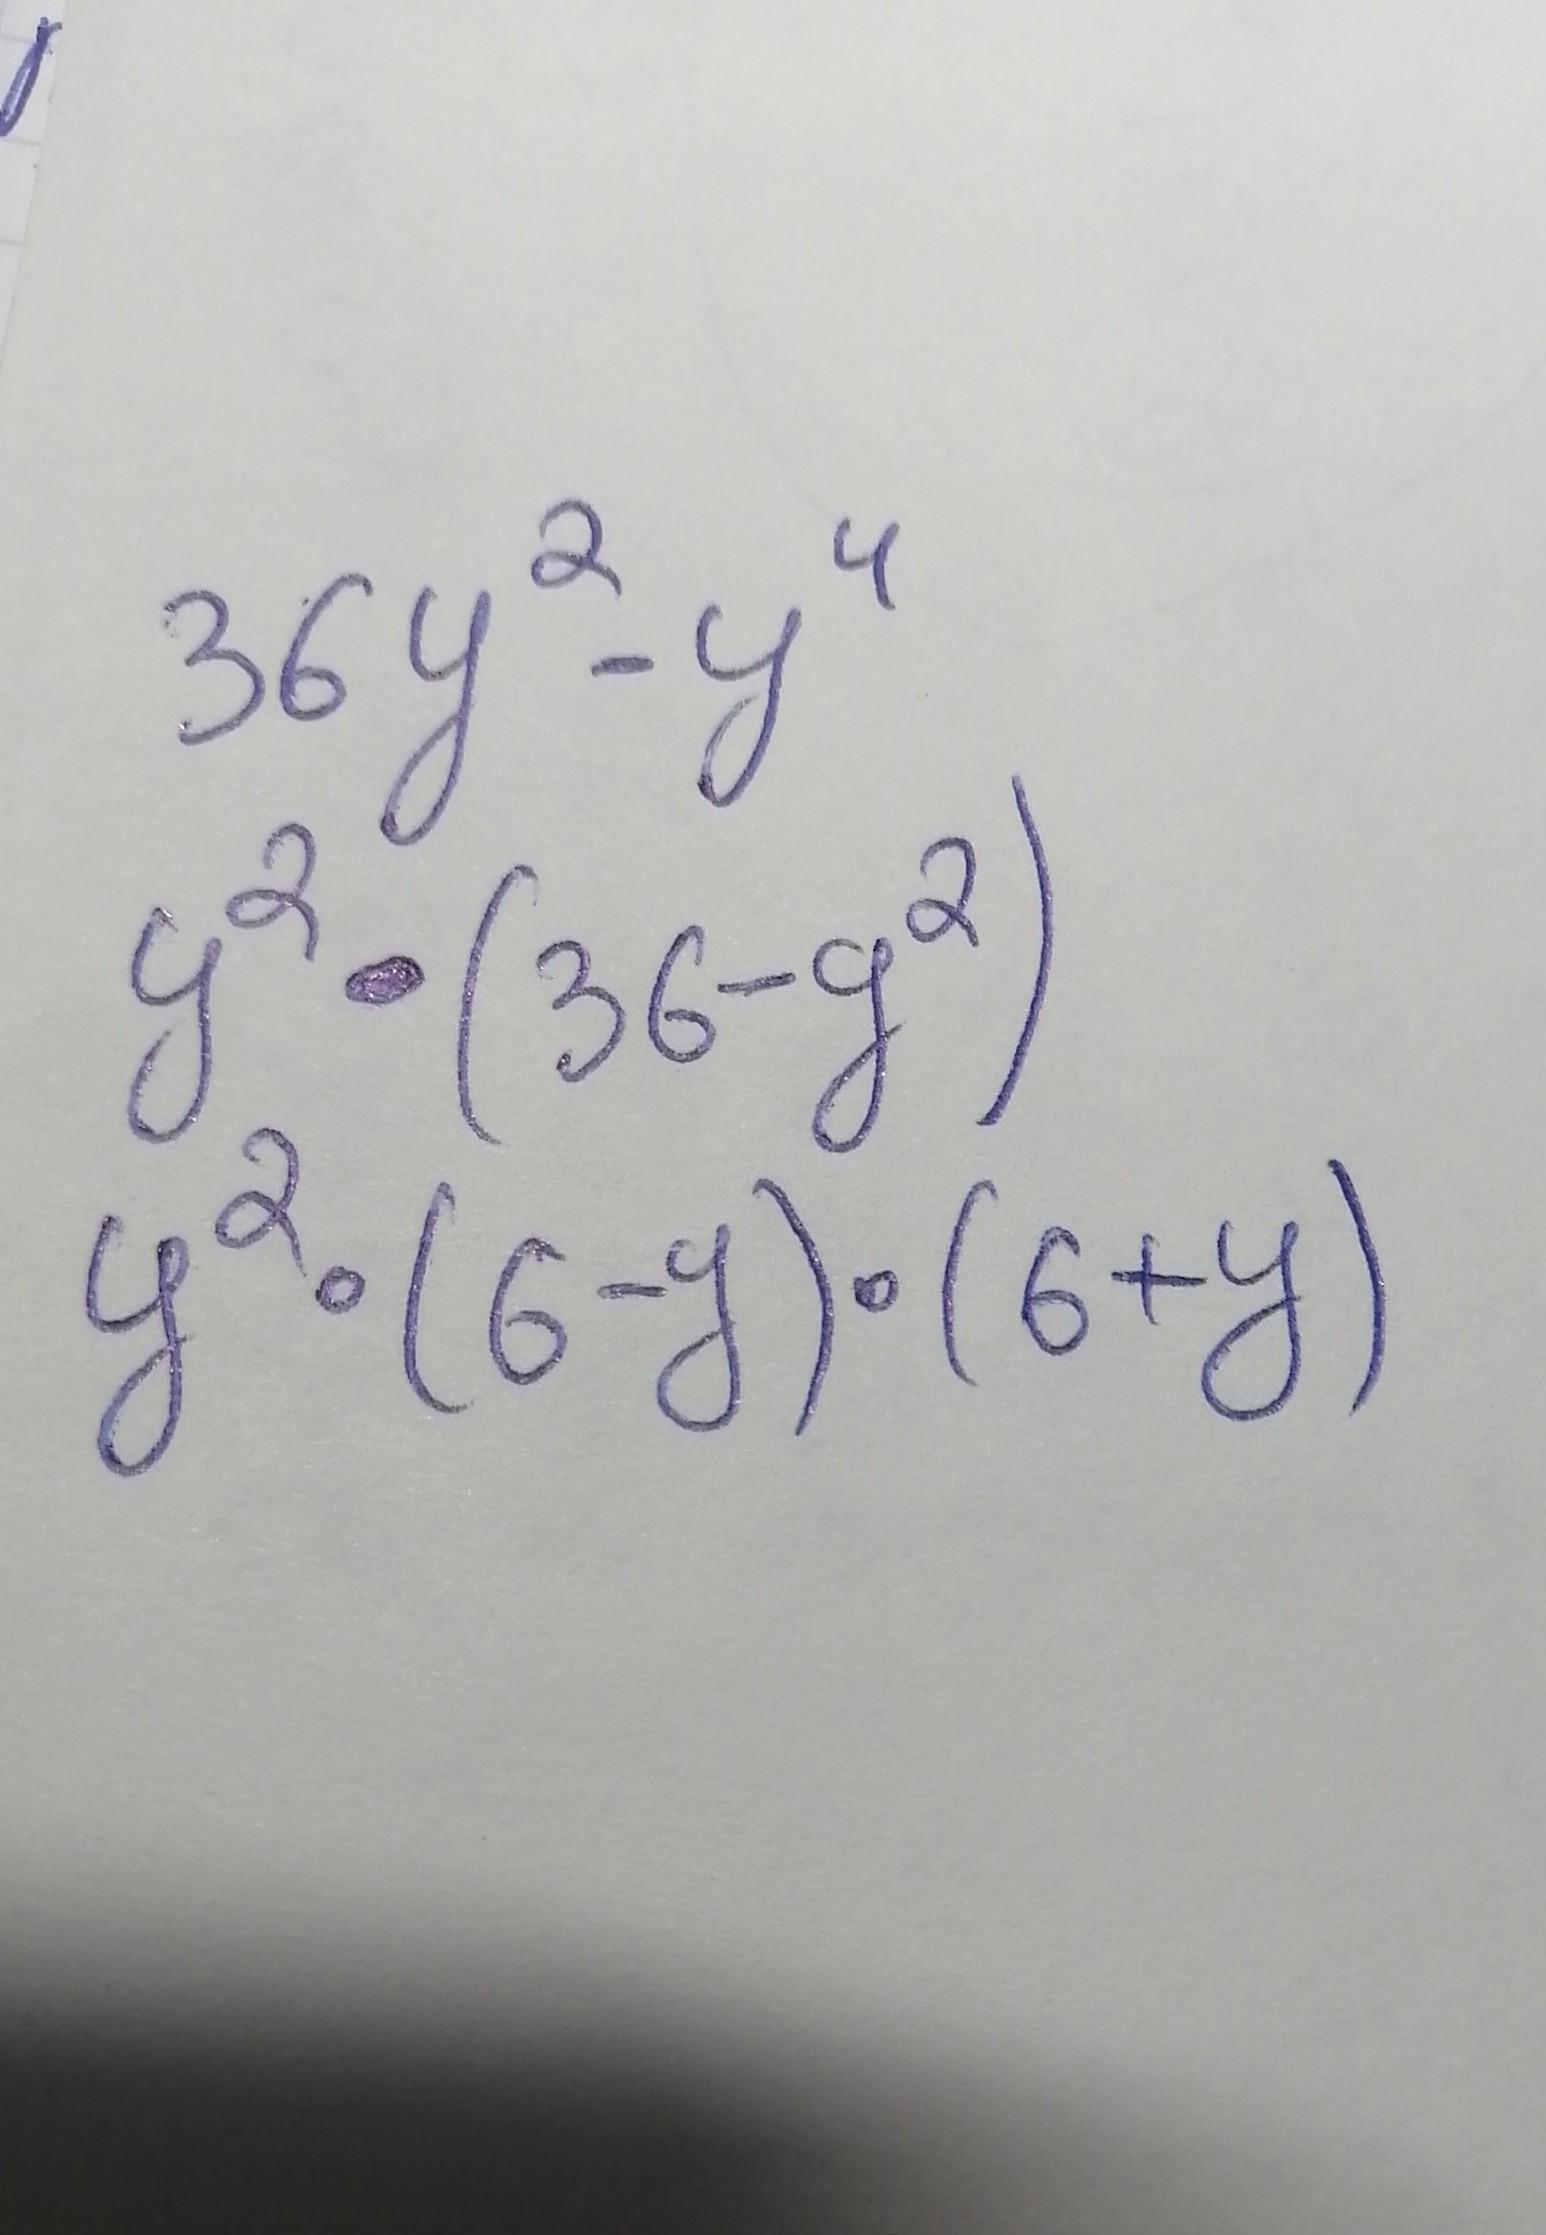 36y² - y⁴
y² • (36 - y²)
y² • (6 - y) • (6 + y)